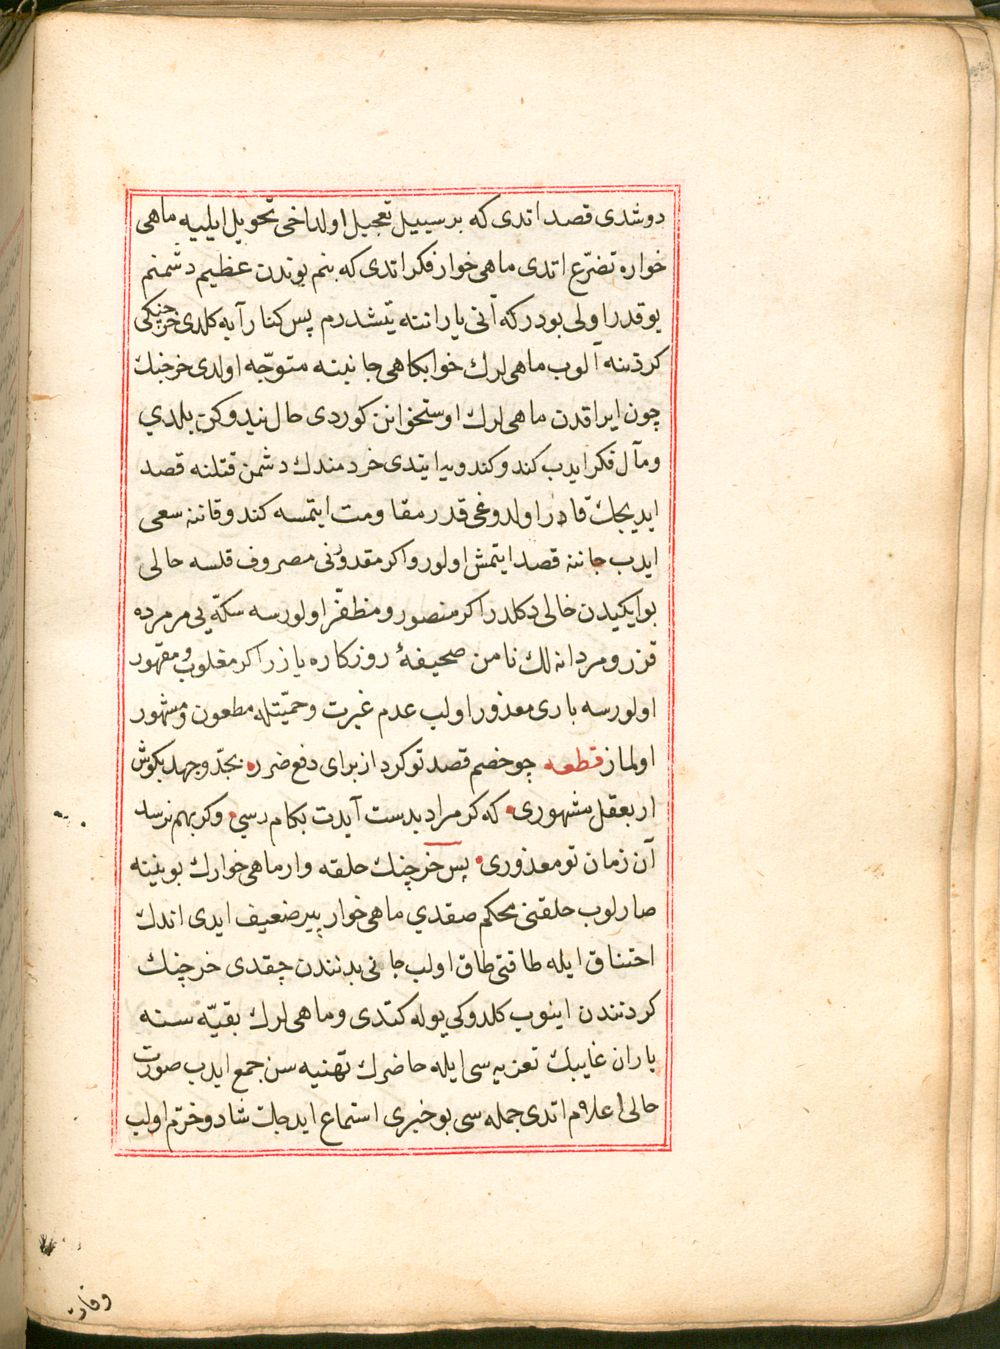 دوشدی قصد اتدی که بر سبیل تعجیل اولداخی تحویل ایلیه ماهی
خواره تضرّع اتدی ماهی خوار فکر اتدی که بنم بوندن عظیم دشمنم
یوقدر اولی بودر که آنی یاراننه یتشدرم پس کنار آبه کلدی خرچنکی
کردننه آلوب ماهی لرك خوابکاهی جانبنه متوجّه اولدی خرچنك
چون ایراقدن ماهی لرك اوستخوانن کوردی حال نیدوکن بلدي
ومآل فکر ایدب کندو کندویه ایتدی خردمندك دشمن قتلنه قصد
ایدیجك قادر اولدوغی قدر مقاومت ایتمسه کندو قاننه سعی
ایدب جاننه قصد ایتمش اولور واکر مقدورنی مصروف قلسه حالی
بو ایکیدن خالی دکلدر اکر منصور ومظفّر اولورسه سکّه یی مرمرده
قزر ومردانه لك نامن صحیفهٔ روزکاره یازر اکر مغلوب ومقهور
اولورسه باری معذور اولب عدم غیرت وحمیّتله مطعون ومشهور
اولماز قطعه چو خصم قصد تو کرد از برای دفع ضرر بجدّ وجهد بکوش
ار بعقل مشهوری که کر مراد بدست آیدت بکام رسي وکر بهم نرسد
آن زمان تو معذوری پس خرچنك حلقه وار ماهی خوارك بوینینه
صارلوب حلقنی محکم صقدي ماهی خوار پیر ضعیف ایدی اندك
اختناق ایله طاقتی طاق اولب جانی بدنندن چقدی خرچنك
کردنندن اینوب کلدوکی یوله کتدی وماهی لرك بقیّه سنه
یاران غایبك تعزیه سی ایله حاضرك تهنیه سن جمع ایدب صورت
حالی اعلام اتدی جمله سی بو خبری استماع ایدجك شاد وخرّم اولب
وفات